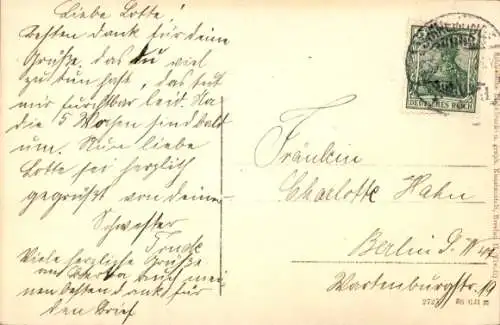 Liebe Lotte!
Besten Dank für deine
Grüße. das du viel
zu tun hast, das tut
mir furchtbar leid. Na
die 5 Wochen sind bald
um. Nun liebe
Lotte sei herzlich
gegrüßt von deiner
Schwester
Trude
Viele herzliche Grüße
an Berta auch mei-
nen besten Dank für
den Brief
DEUTSCHES REICH
Fräulein
Charlotte Hahn
Berlin S. W 47
Wartenburgstr. 19